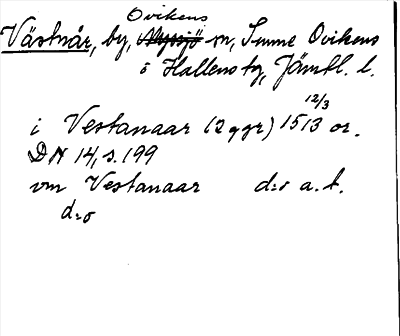 Ovikens
Västnår, by, Myssjö sn, Smne Ovikens
o Hallens tg, Jämtl. l.
12/3
i Vestanaar (2 ggr) 1513 or.
DN 14, s. 199
vm Vestanaar d:o a. t.
d:o